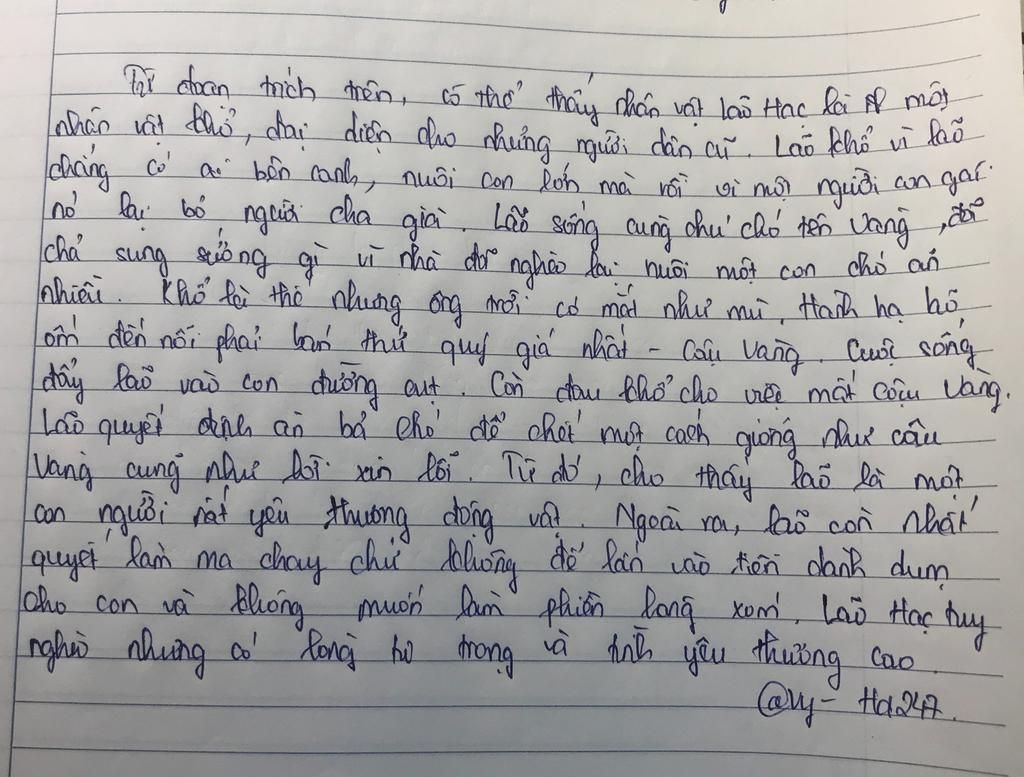 Từ đoạn trích trên, có thể thấy nhân vật lão Hạc là một
nhân vật khổ, đại diện cho những người dân cũ. Lão khổ vì lão
chẳng có ai bên cạnh, nuôi con lớn mà rồi vì một người con gái
nó lại bỏ người cha già. Lão sống cùng chú chó tên Vàng, đã
chả sung sướng gì vì nhà đã nghèo lại nuôi một con chó ăn
nhiều. Khổ là thế nhưng ông trời có mắt như mù, hành hạ
ốm đến nỗi phải bán thứ quý giá nhất - Cậu Vàng. Cuộc sống
đẩy lão vào con đường cụt. Còn đau khổ cho việc mất cậu Vàng.
Lão quyết định ăn bả chó để chết một cách giống như cậu
Vàng cũng như lời xin lỗi. Từ đó, cho thấy lão là một
con người rất yêu thương động vật. Ngoài ra, lão còn nhất
quyết làm ma chay chứ không để lấn vào tiền dành dụm
cho con và không muốn làm phiền làng xóm. Lão Hạc tuy
nghèo nhưng có lòng tự trọng và tình yêu thương cao.
@Vy - Hd247.